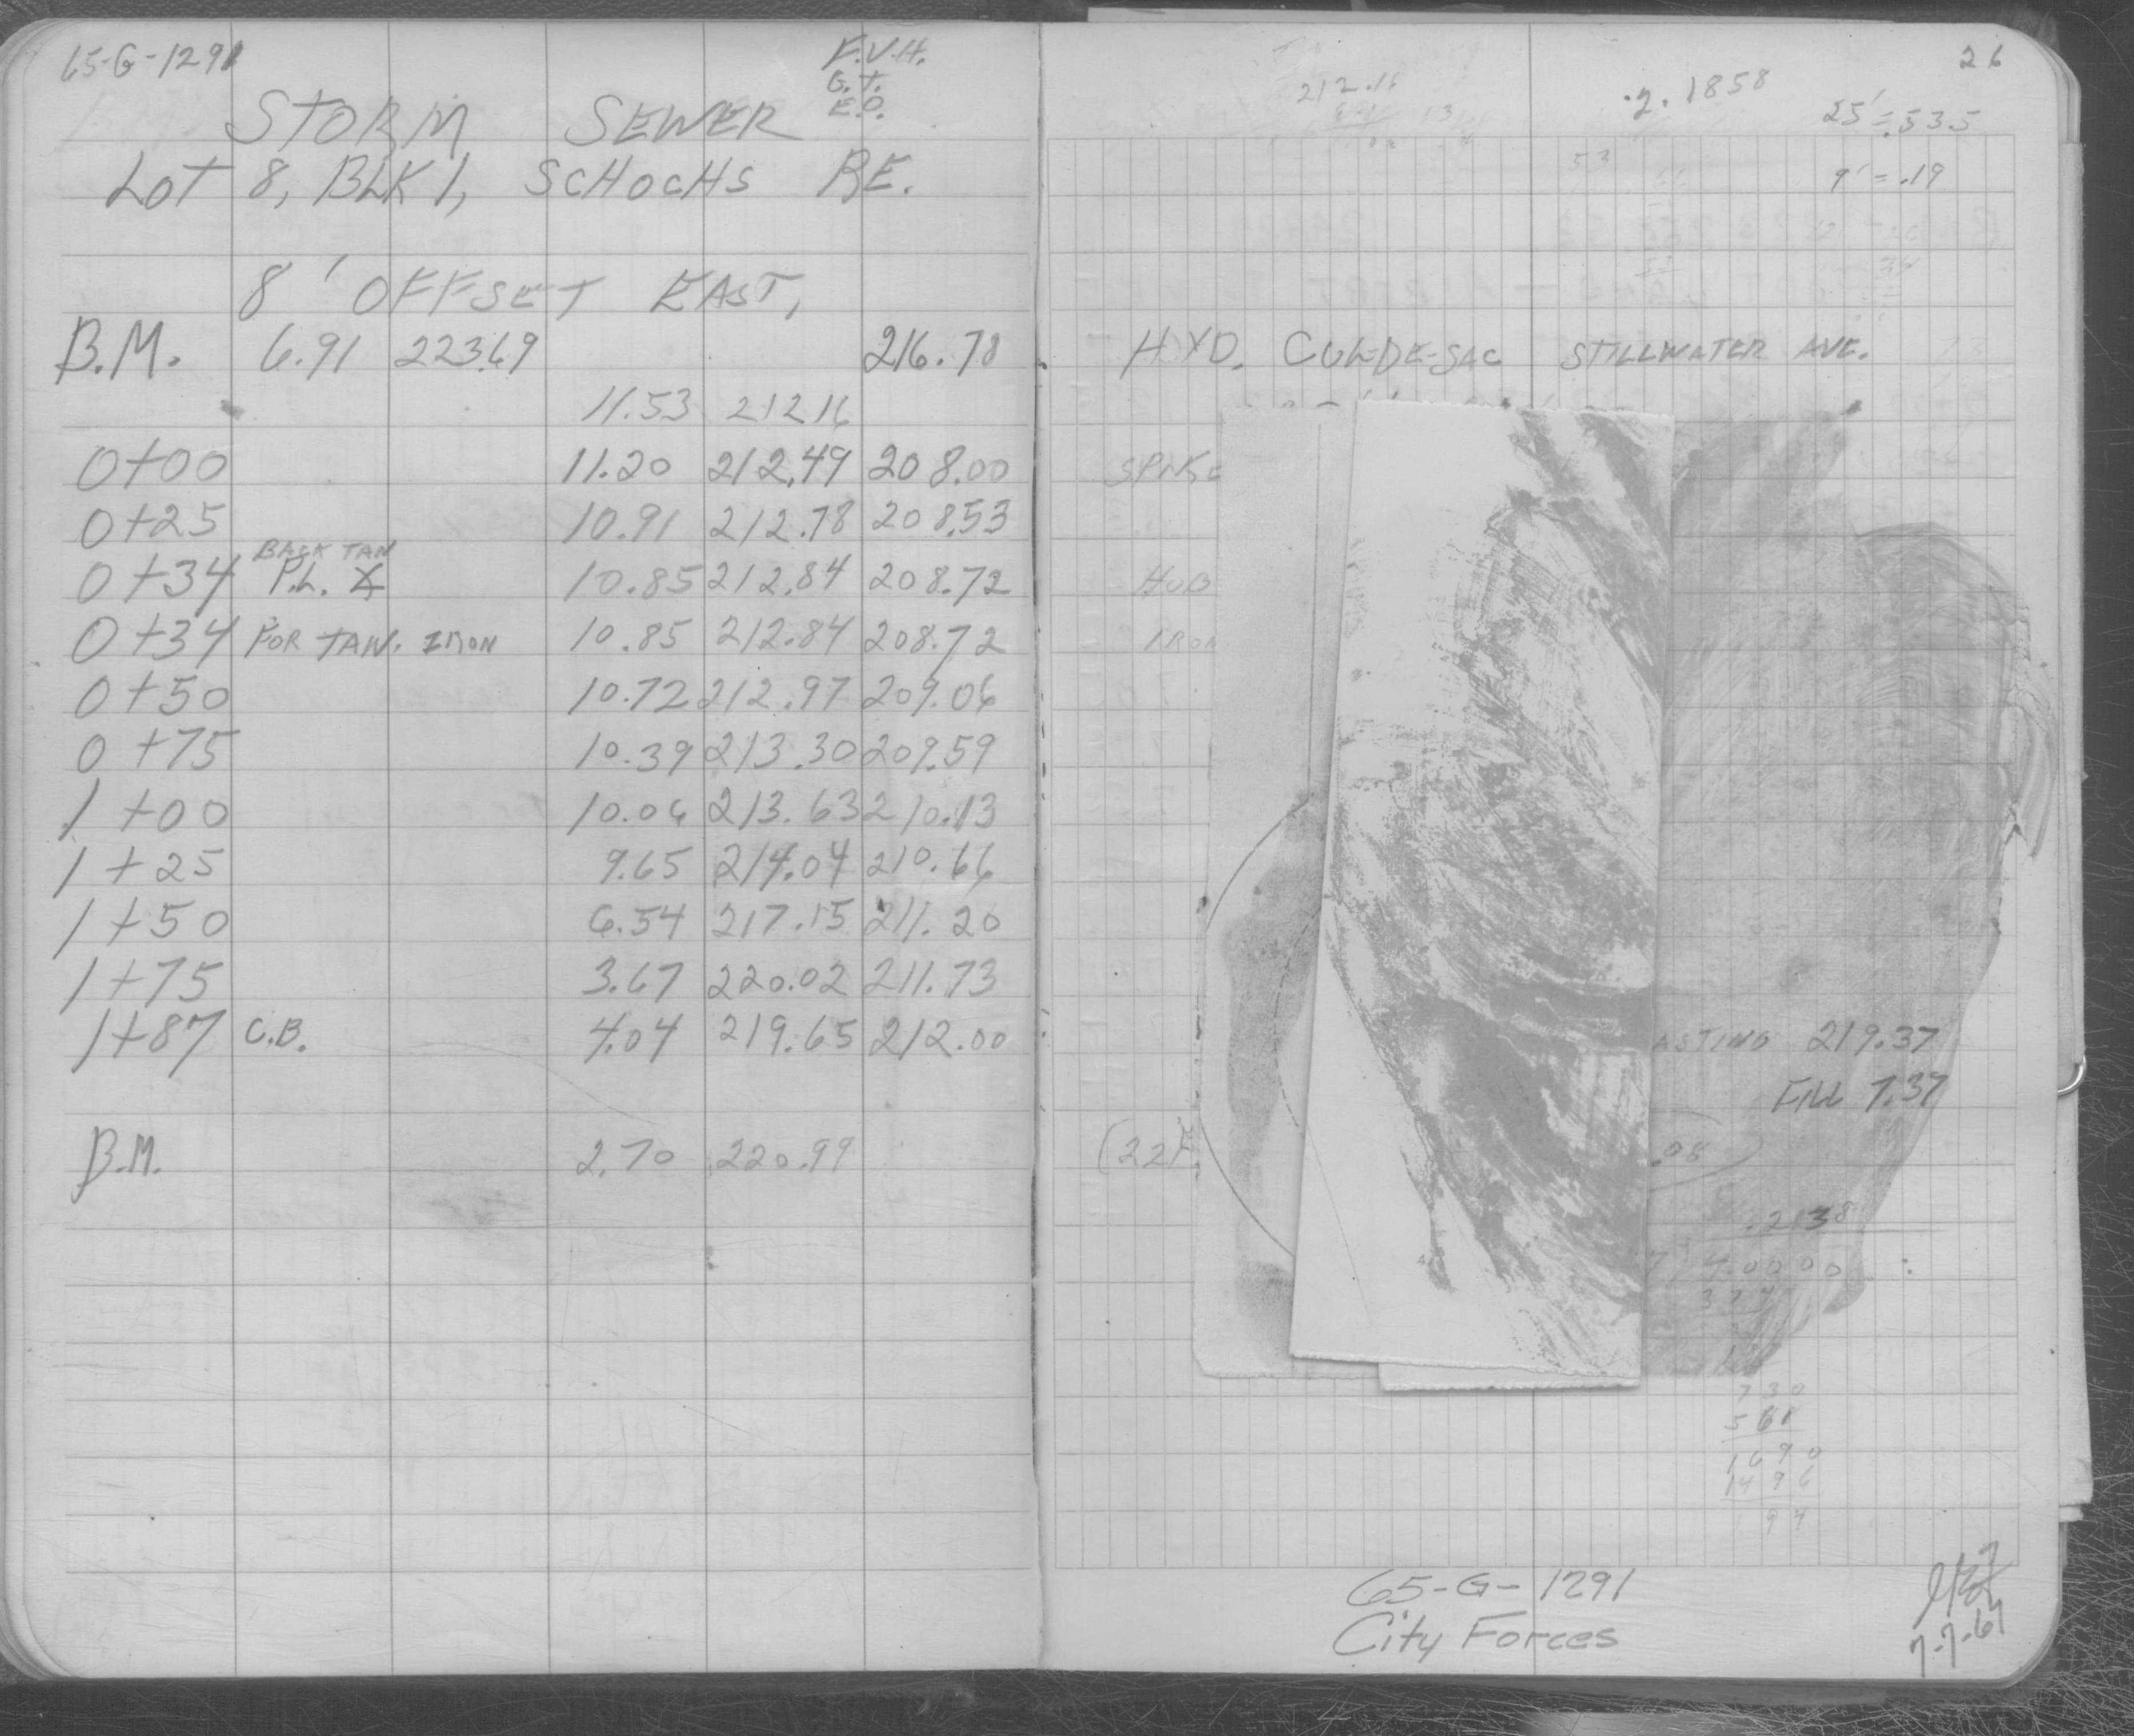 65-G-1291
F.V.H.
G.T.
E.O.
STORM SEWER
LOT 8, BLK 1, SCHOCHS RE.
8' OFFSET EAST,
B.M. 6.91 223.69 216.78
11.53 212.16
0+00 11.20 212.49 208.00
0+25 10.91 212.78 208.53
BACK TAN
0+34 P.L. 10.85 212.84 208.72
0+34 FOR TAN. IRON 10.85 212.84 208.72
0+50 10.72 212.97 209.06
0+75 10.39 213.30 209.59
1+00 10.06 213.63 210.13
1+25 9.65 214.04 210.66
1+50 6.54 217.15 211.20
1+75 3.67 220.02 211.73
1+87 C.B. 4.04 219.65 212.00
B.M. 2.70 220.99
26
212.16
.2.1858
25' = .535
9' = .19
53
HYD. CUL-DE-SAC STILLWATER AVE.
SPIKE
HUB
IRON
ASTING 219.37
FILL 7.37
(22
.08)
.2138
730
561
1690
1496
194
65-G-1291
City Forces
7-7-67